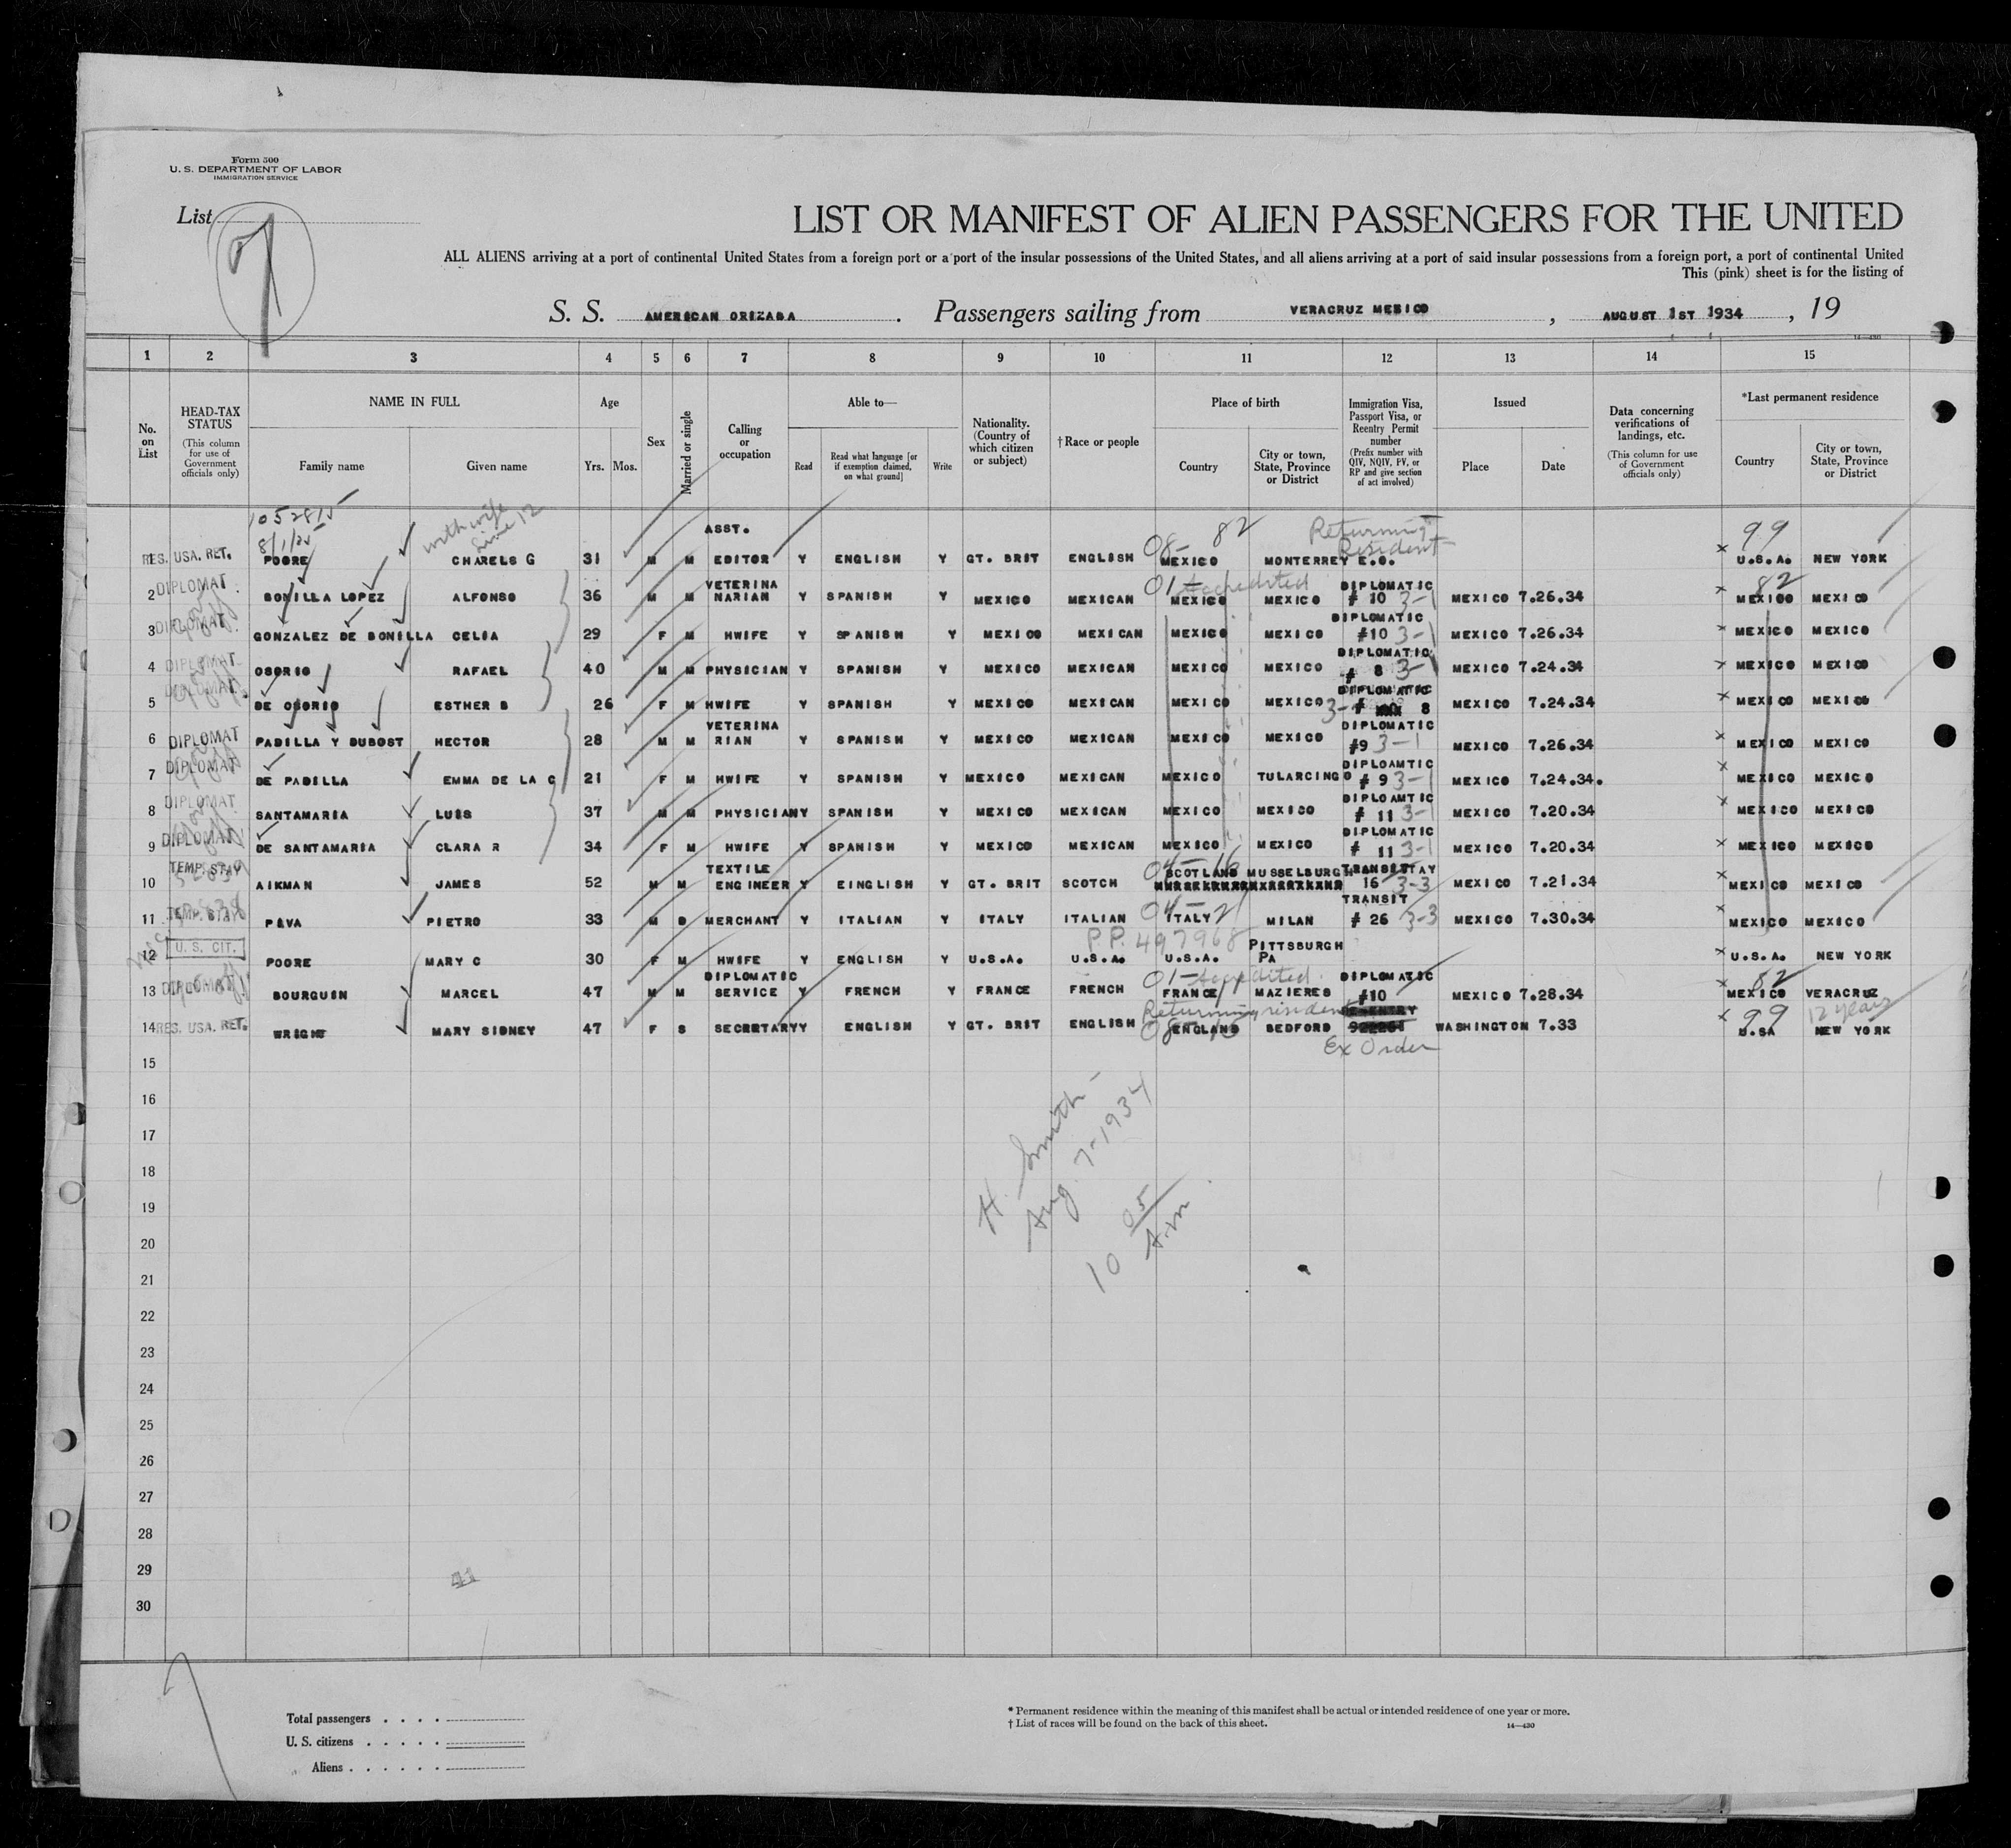 Form 500
U. S. DEPARTMENT OF LABOR
IMMIGRATION SERVICE
List
LIST OR MANIFEST OF ALIEN PASSENGERS FOR THE UNITED
ALL ALIENS arriving at a port of continental United States from a foreign port or a port of the insular possessions of the United States, and all aliens arriving at a port of said insular possessions from a foreign port, a port of continental United
This (pink) sheet is for the listing of
S. S. AMERICAN ORIZABA . Passengers sailing from VERACRUZ MEXICO , AUGUST 1ST 1934 , 19
14—430
1 2 3 4 5 6 7 8 9 10 11 12 13 14 15
No. on List
HEAD-TAX STATUS (This column for use of Government officials only)
NAME IN FULL
Family name Given name
Age
Yrs. Mos.
Sex
Married or single
Calling or occupation
Able to—
Read Read what language [or if exemption claimed, on what ground] Write
Nationality. (Country of which citizen or subject)
† Race or people
Place of birth
Country City or town, State, Province or District
Immigration Visa, Passport Visa, or Reentry Permit number (Prefix number with QIV, NQIV, PV, or RP and give section of act involved)
Issued
Place Date
Data concerning verifications of landings, etc. (This column for use of Government officials only)
*Last permanent residence
Country City or town, State, Province or District
with wife line 12
08- 82 Returning Resident 99
1 RES. USA. RET. POORE CHARELS G 31 M M ASST. EDITOR Y ENGLISH Y GT. BRIT ENGLISH MEXICO MONTERREY E.O. U.S.A. NEW YORK
01- Accredited 82
2 DIPLOMAT. BONILLA LOPEZ ALFONSO 36 M M VETERINA NARIAN Y SPANISH Y MEXICO MEXICAN MEXICO MEXICO DIPLOMATIC # 10 3-1 MEXICO 7.26.34 MEXICO MEXICO
3 DIPLOMAT. GONZALEZ DE BONILLA CELIA 29 F M HWIFE Y SPANISH Y MEXICO MEXICAN MEXICO MEXICO DIPLOMATIC #10 3-1 MEXICO 7.26.34 MEXICO MEXICO
4 DIPLOMAT OSORIO RAFAEL 40 M M PHYSICIAN Y SPANISH Y MEXICO MEXICAN MEXICO MEXICO DIPLOMATIC # 8 3-1 MEXICO 7.24.34 MEXICO MEXICO
5 DIPLOMAT. DE OSORIO ESTHER B 26 F M HWIFE Y SPANISH Y MEXICO MEXICAN MEXICO MEXICO DIPLOMATIC # 8 MEXICO 7.24.34 MEXICO MEXICO
6 DIPLOMAT PADILLA Y DUBOST HECTOR 28 M M VETERINA RIAN Y SPANISH Y MEXICO MEXICAN MEXICO MEXICO DIPLOMATIC #9 3-1 MEXICO 7.26.34 MEXICO MEXICO
7 DIPLOMAT DE PADILLA EMMA DE LA C 21 F M HWIFE Y SPANISH Y MEXICO MEXICAN MEXICO TULARCINGO DIPLOAMTIC # 9 3-1 MEXICO 7.24.34. MEXICO MEXICO
8 DIPLOMAT SANTAMARIA LUIS 37 M M PHYSICIAN Y SPANISH Y MEXICO MEXICAN MEXICO MEXICO DIPLOAMTIC # 11 3-1 MEXICO 7.20.34 MEXICO MEXICO
9 DIPLOMAT DE SANTAMARIA CLARA R 34 F M HWIFE Y SPANISH Y MEXICO MEXICAN MEXICO MEXICO DIPLOMATIC # 11 3-1 MEXICO 7.20.34 MEXICO MEXICO
04-16
10 TEMP. STAY AIKMAN JAMES 52 M M TEXTILE ENGINEER Y EINGLISH Y GT. BRIT SCOTCH SCOTLAND MUSSELBURGH 16 3-3 MEXICO 7.21.34 MEXICO MEXICO
04-21
11 TEMP. STAY PAVA PIETRO 33 M D MERCHANT Y ITALIAN Y ITALY ITALIAN ITALY MILAN TRANSIT # 26 3-3 MEXICO 7.30.34 MEXICO MEXICO
P.P. 497968
12 U. S. CIT. POORE MARY C 30 F M HWIFE Y ENGLISH Y U.S.A. U.S.A. U.S.A. PITTSBURGH PA U.S.A. NEW YORK
01- Accredited. 82
13 DIPLOMAT BOURGUIN MARCEL 47 M M DIPLOMATIC SERVICE Y FRENCH Y FRANCE FRENCH FRANCE MAZIERES DIPLOMATIC #10 MEXICO 7.28.34 MEXICO VERACRUZ
Returning resident 99 12 years
14 RES. USA. RET. WRIGHT MARY SIDNEY 47 F S SECRETARY Y ENGLISH Y GT. BRIT ENGLISH ENGLAND BEDFORD WASHINGTON 7.33 U.SA NEW YORK
Ex Order
15
16
17
18
19
20
21
22
23
24
25
26
27
28
29
30
H. Smith -
Aug. 7-1934
10 05 A.M.
41
Total passengers . . . .
U. S. citizens . . . . .
Aliens . . . . . .
* Permanent residence within the meaning of this manifest shall be actual or intended residence of one year or more.
† List of races will be found on the back of this sheet.
14—430